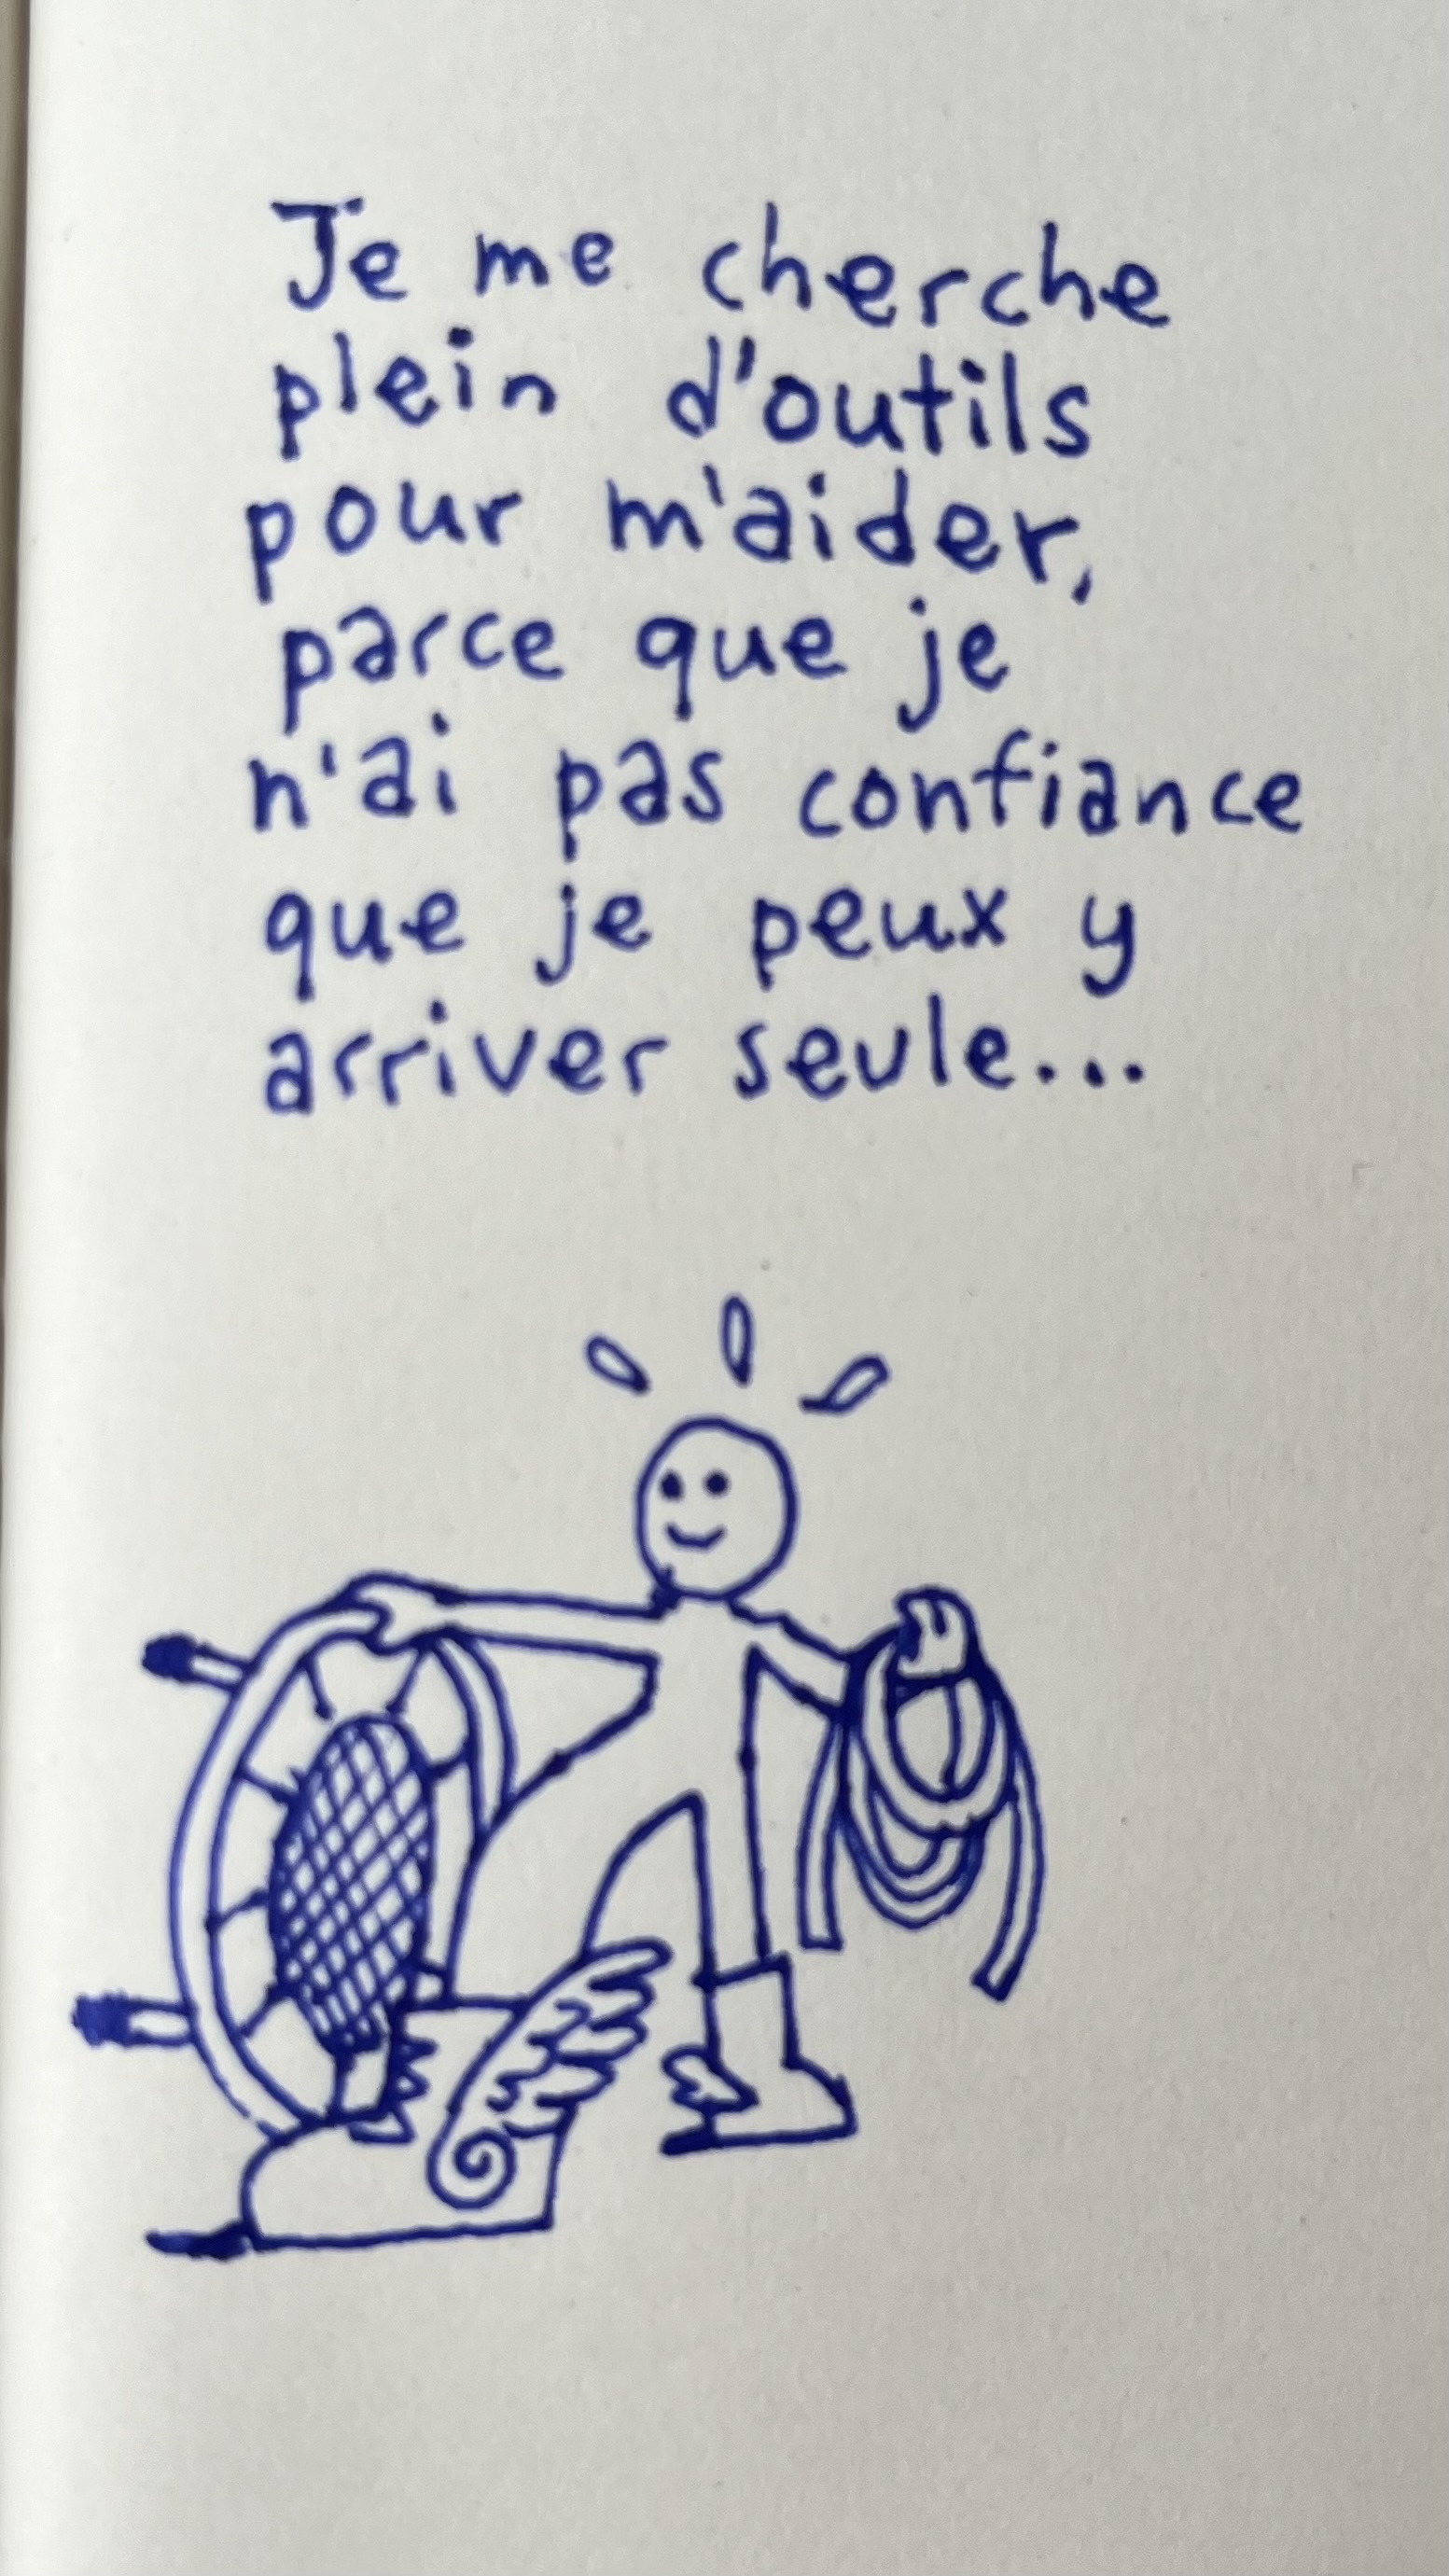 Je me cherche
plein d'outils
pour m'aider,
parce que je
n'ai pas confiance
que je peux y
arriver seule...